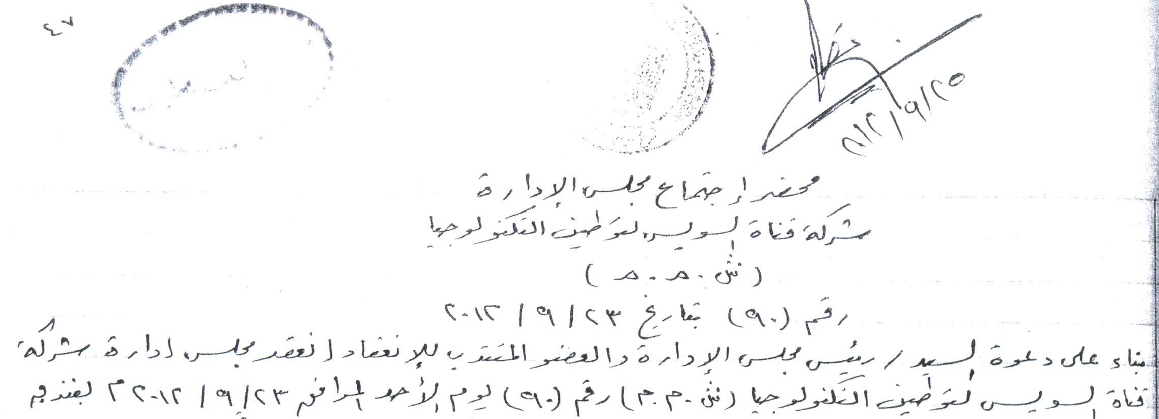 ٤٧
٢٠١٢/٩/٢٥
محضر إجتماع مجلس الإدارة
شركة قناة السويس لتوطين التكنولوجيا
(ش.م.م)
رقم (٩٠) بتاريخ ٢٣/٩/٢٠١٢
بناء على دعوة السيد / رئيس مجلس الإدارة والعضو المنتدب للإنعقاد إنعقد مجلس إدارة شركة
قناة السويس لتوطين التكنولوجيا (ش.م.م) رقم (٩٠) يوم الأحد الموافق ٢٣/٩/٢٠١٢ م بفندق